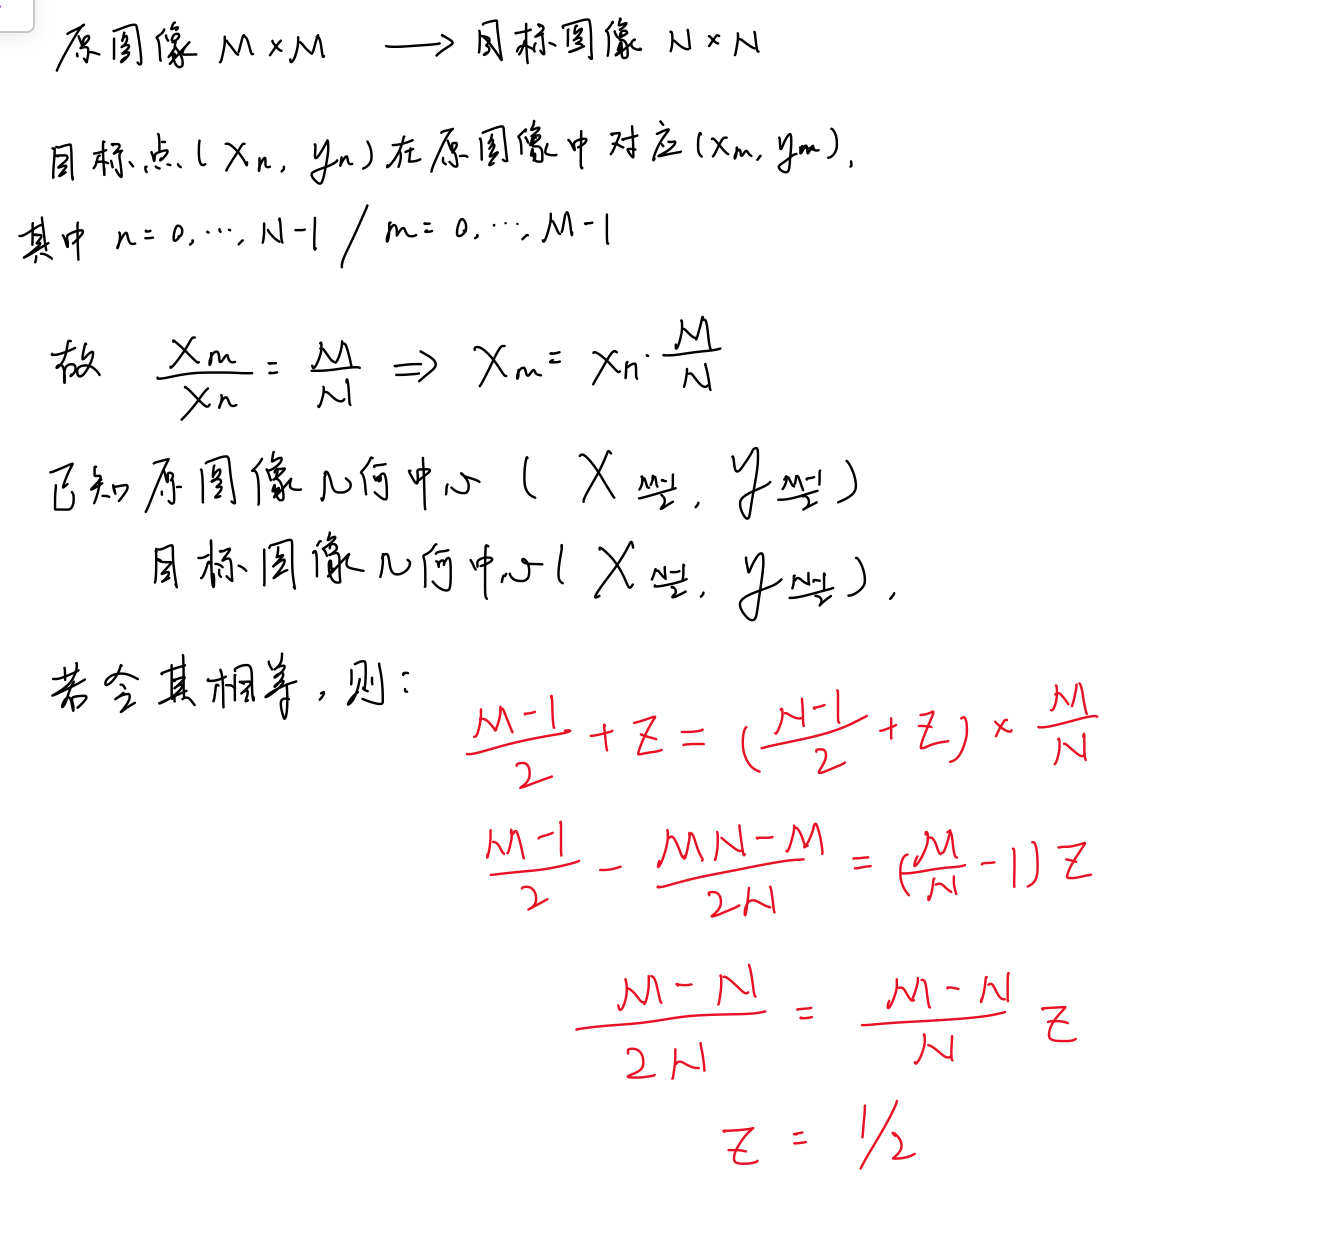 原图像 M × M → 目标图像 N × N
目标点(Xn, yn)在原图像中对应(Xm, ym),
其中 n= 0, ..., N-1 / m= 0, ..., M-1
故 Xm/Xn = M/N ⇒ Xm = Xn · M/N
已知原图像几何中心 ( X_{(M-1)/2}, y_{(M-1)/2} )
目标图像几何中心( X_{(N-1)/2}, y_{(N-1)/2} ),
若令其相等,则:
(M-1)/2 + Z = ((N-1)/2 + Z) × M/N
(M-1)/2 - (MN-M)/2N = (M/N - 1) Z
(M-N)/2N = (M-N)/N Z
Z = 1/2